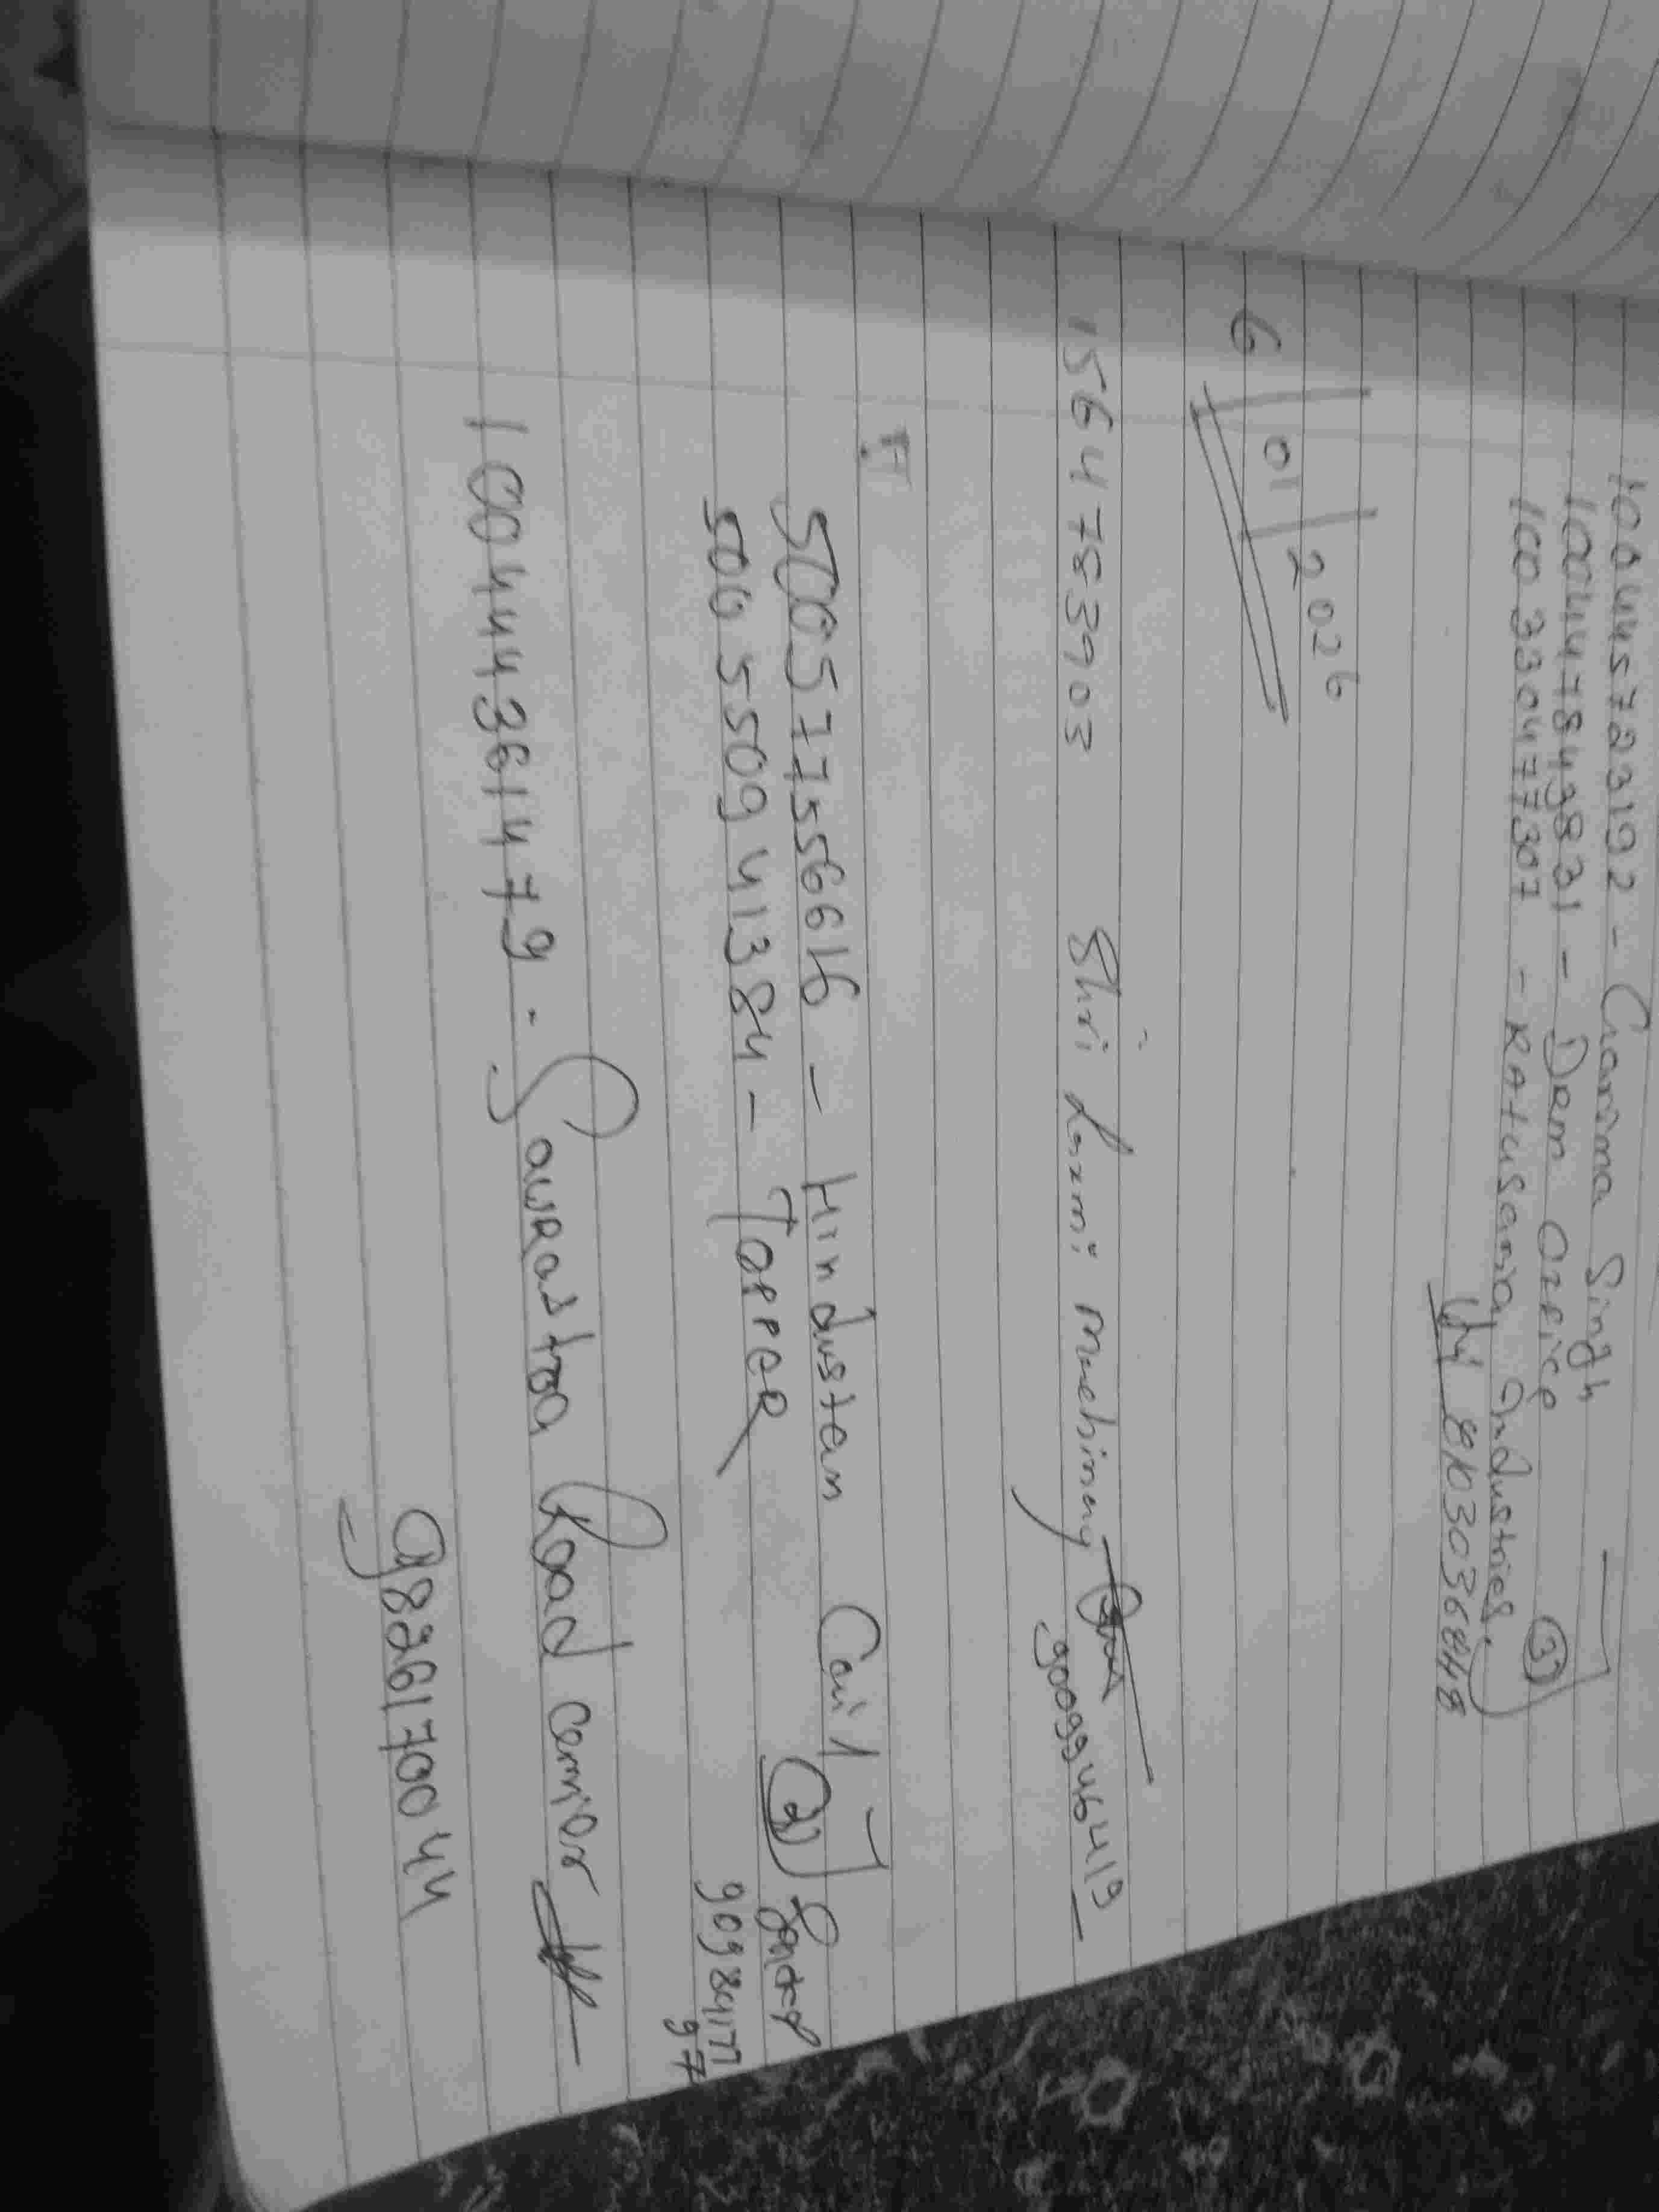 100445722192 - Garima Singh
1004447843831 - DRM OFFice
100330477307 - RATUSaria Industries. (3)
8103036848
6/01/2026
15647853903 Shri Laxmi machinary
9009946419
500577556616 - Hindustan Coil
500550941384 - TOPPER (2)
90984177
97
100444361479. Saurastra Road Carrier
9826170044